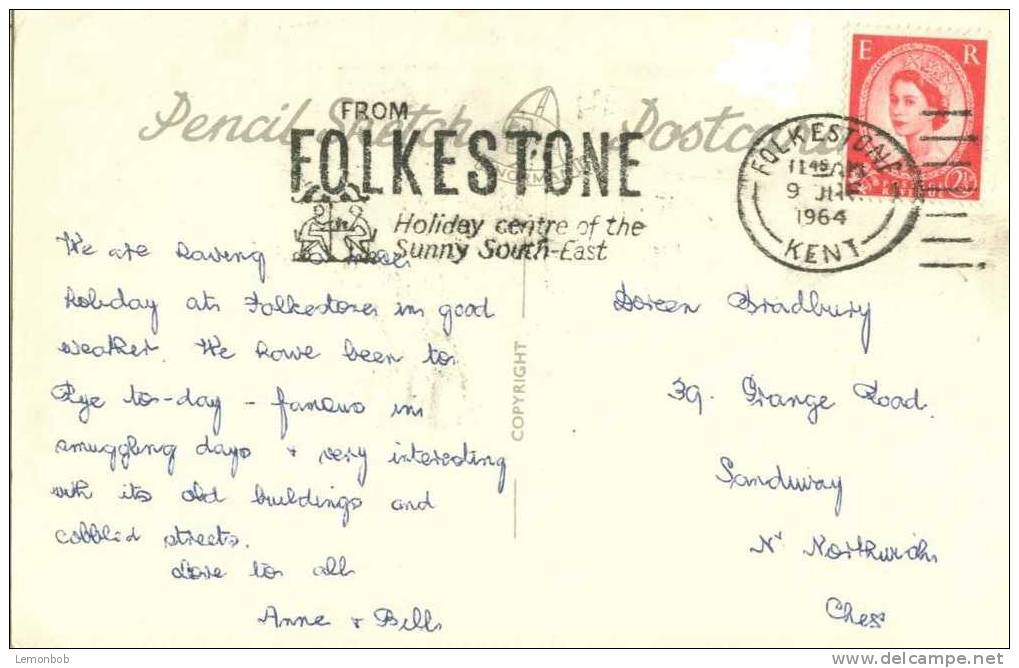 Pencil Sketch Postcard
E R
FROM
FOLKESTONE
Holiday centre of the
Sunny South-East
FOLKESTONE
11 45 AM
9
1964
KENT
2½
We are having a nice
holiday at Folkestone in good
weather. We have been to
Rye to-day - famous in
smuggling days + very interesting
with its old buildings and
cobbled streets.
Love to all
Anne + Bill
COPYRIGHT
Doreen Bradbury
39. Grange Road.
Sandiway
Nr Northwich
Ches
Lemonbob
www.delcampe.net